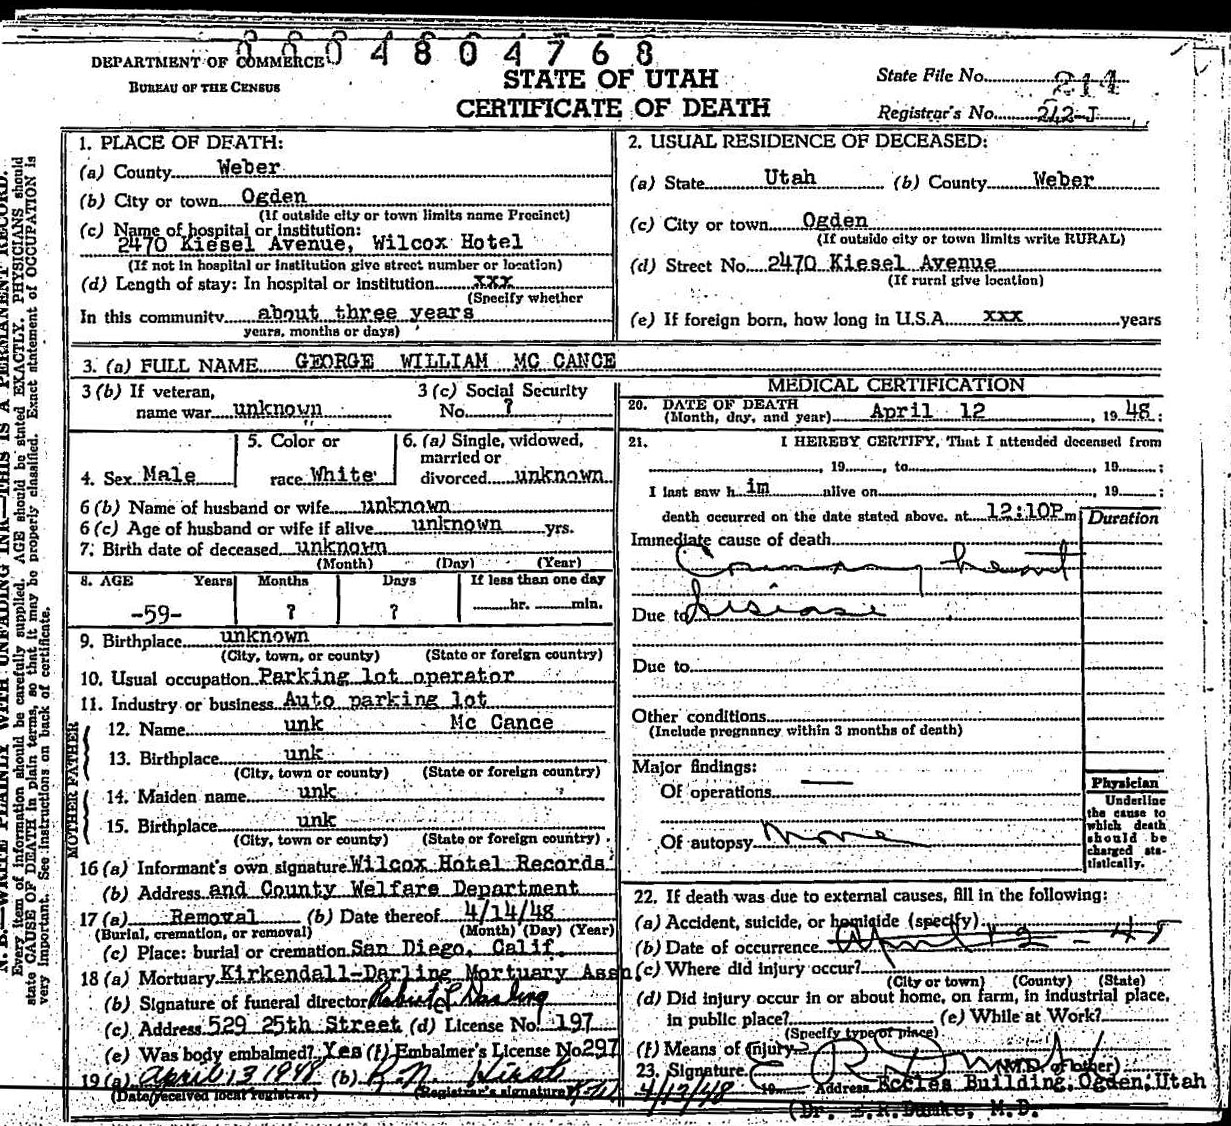 0004804768
DEPARTMENT OF COMMERCE
BUREAU OF THE CENSUS
STATE OF UTAH
CERTIFICATE OF DEATH
State File No. 214
Registrar's No. 242-J
1. PLACE OF DEATH:
(a) County Weber
(b) City or town Ogden
(If outside city or town limits name Precinct)
(c) Name of hospital or institution:
2470 Kiesel Avenue, Wilcox Hotel
(If not in hospital or institution give street number or location)
(d) Length of stay: In hospital or institution xxx
(Specify whether
In this community about three years
years, months or days)
2. USUAL RESIDENCE OF DECEASED:
(a) State Utah (b) County Weber
(c) City or town Ogden
(If outside city or town limits write RURAL)
(d) Street No. 2470 Kiesel Avenue
(If rural give location)
(e) If foreign born, how long in U.S.A. xxx years
3. (a) FULL NAME GEORGE WILLIAM MC CANCE
3 (b) If veteran,
name war unknown
3 (c) Social Security
No. ?
4. Sex Male
5. Color or
race White
6. (a) Single, widowed,
married or
divorced unknown
6 (b) Name of husband or wife unknown
6 (c) Age of husband or wife if alive unknown yrs.
7. Birth date of deceased unknown
(Month) (Day) (Year)
8. AGE Years Months Days If less than one day
-59- ? ? hr. min.
9. Birthplace unknown
(City, town, or county) (State or foreign country)
10. Usual occupation Parking lot operator
11. Industry or business Auto parking lot
FATHER
12. Name unk Mc Cance
13. Birthplace unk
(City, town or county) (State or foreign country)
MOTHER
14. Maiden name unk ?
15. Birthplace unk
(City, town or county) (State or foreign country)
16 (a) Informant's own signature Wilcox Hotel Records
(b) Address and County Welfare Department
17 (a) Removal (b) Date thereof 4/14/48
(Burial, cremation, or removal) (Month) (Day) (Year)
(c) Place: burial or cremation San Diego, Calif.
18 (a) Mortuary Kirkendall-Darling Mortuary Assn
(b) Signature of funeral director Robert L Darling
(c) Address 529 25th Street (d) License No. 197
(e) Was body embalmed? Yes (f) Embalmer's License No 297
19 (a) April 13 1948 (b)
(Date received local registrar) (Registrar's signature)
MEDICAL CERTIFICATION
20. DATE OF DEATH
(Month, day, and year) April 12, 1948:
21. I HEREBY CERTIFY, That I attended deceased from
, 19 , to , 19 :
I last saw him alive on , 19 :
death occurred on the date stated above. at 12:10P m
Duration
Immediate cause of death
Coronary heart
Due to disease
Due to
Other conditions
(Include pregnancy within 3 months of death)
Major findings:
Of operations —
Of autopsy none
Physician
Underline
the cause to
which death
should be
charged sta-
tistically.
22. If death was due to external causes, fill in the following:
(a) Accident, suicide, or homicide (specify)
(b) Date of occurrence April 12 - 48
(c) Where did injury occur?
(City or town) (County) (State)
(d) Did injury occur in or about home, on farm, in industrial place,
in public place? (e) While at Work?
(Specify type of place)
(f) Means of Injury
23. Signature E R Dumke (M.D. or other)
4/12/48 19 Address Eccles Building, Ogden, Utah
(Dr. E.R.Dumke, M.D.
N. B.—WRITE PLAINLY WITH UNFADING INK—THIS IS A PERMANENT RECORD.
Every item of information should be carefully supplied. AGE should be stated EXACTLY. PHYSICIANS should
state CAUSE OF DEATH in plain terms, so that it may be properly classified. Exact statement of OCCUPATION is
very important. See instructions on back of certificate.